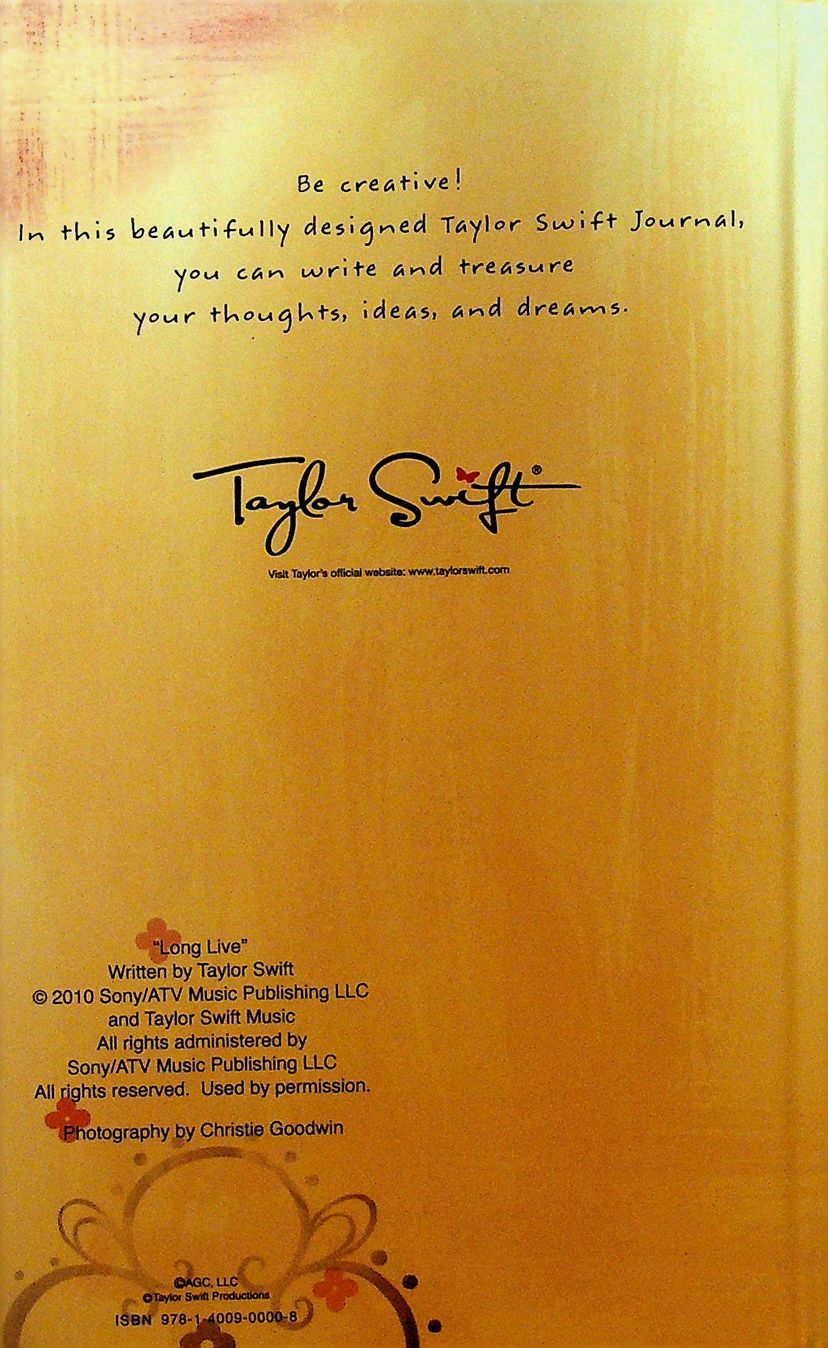 Be creative!
In this beautifully designed Taylor Swift Journal,
you can write and treasure
your thoughts, ideas, and dreams.
Taylor Swift®
Visit Taylor's official website: www.taylorswift.com
"Long Live"
Written by Taylor Swift
© 2010 Sony/ATV Music Publishing LLC
and Taylor Swift Music
All rights administered by
Sony/ATV Music Publishing LLC
All rights reserved. Used by permission.
Photography by Christie Goodwin
©AGC, LLC
©Taylor Swift Productions
ISBN 978-1-4009-0000-8